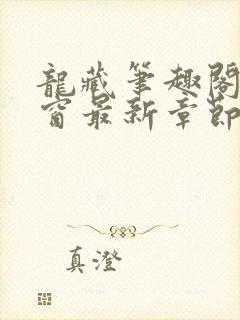 龍藏筆趣閣
窗最新章節
真澄